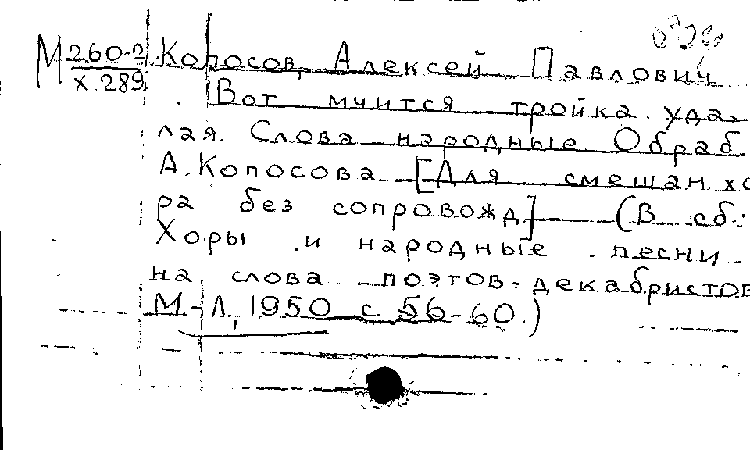 М 260-2 Копосов, Алексей Павлович
Х.289 Вот мчится тройка уда-
лая. Слова народные Обраб.
А. Копосова [Для смешан хо
ра без сопровожд.] (В сб.:
Хоры и народные песни
на слова поэтов-декабристов
М-Л, 1950 с 56-60.)